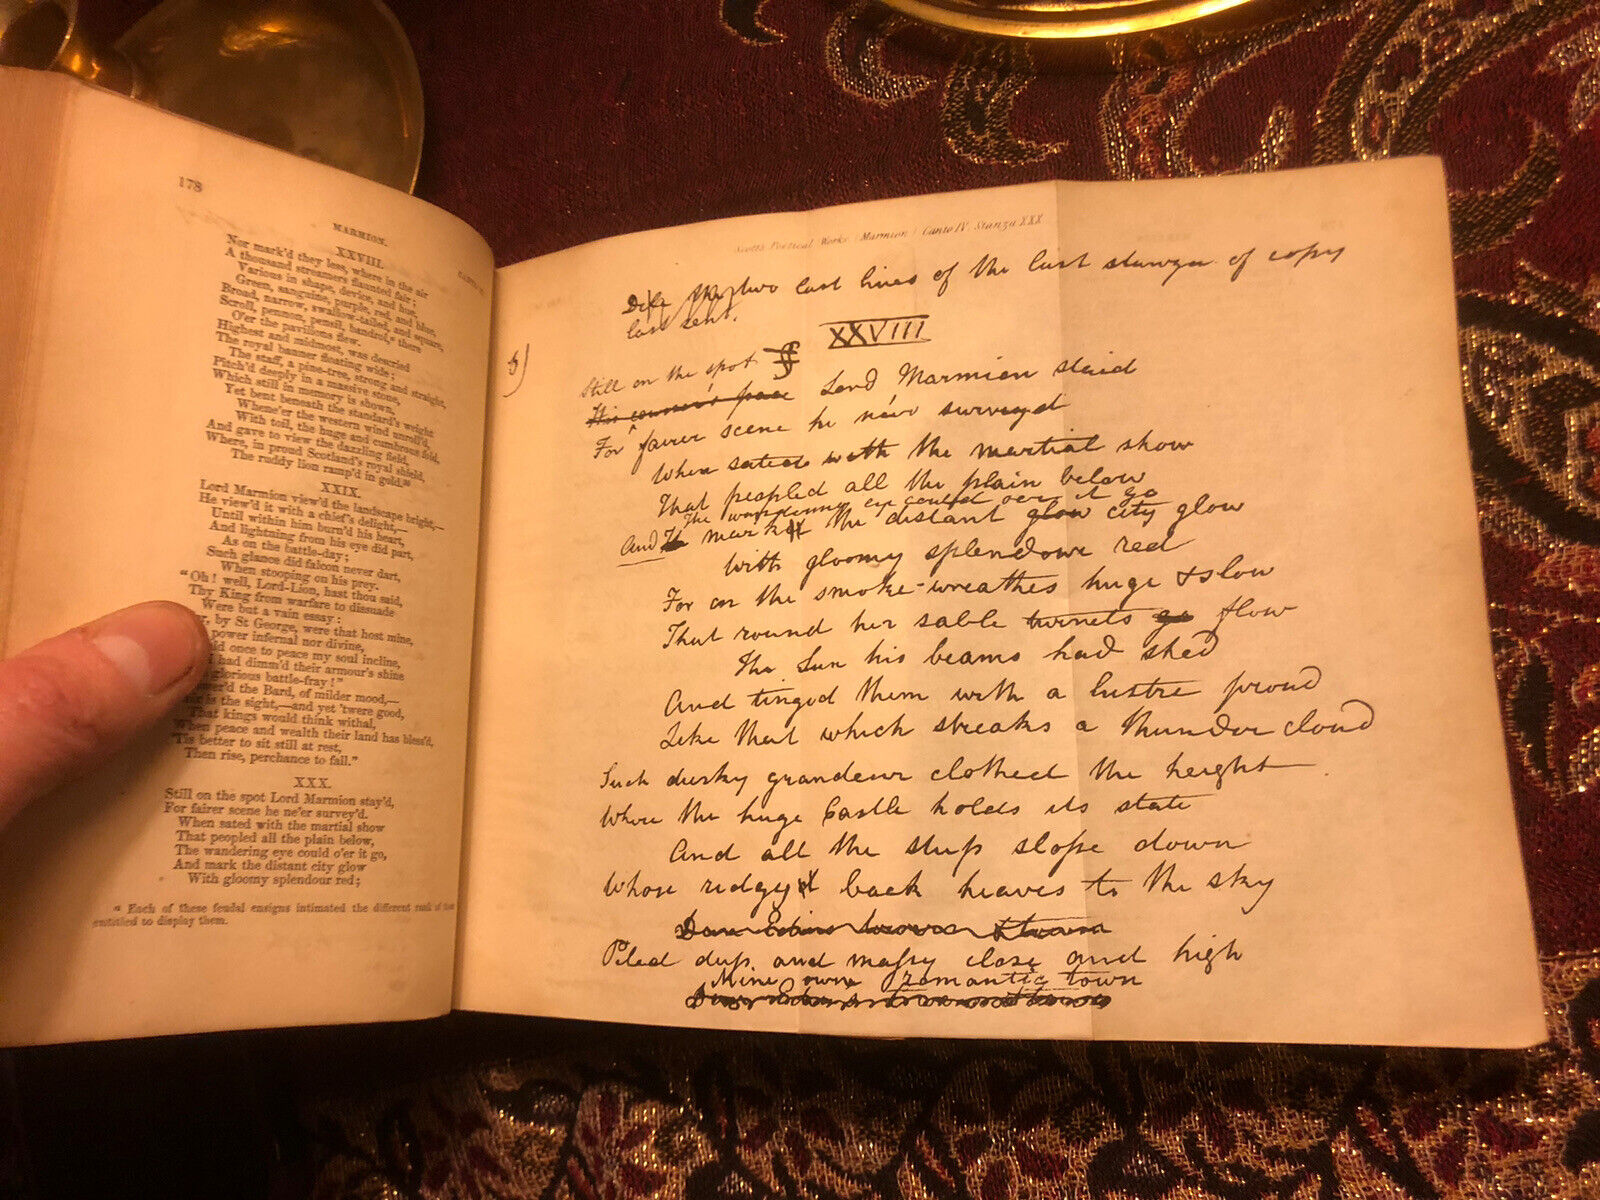 178
MARMION.
XXVIII.
Nor mark'd they less, where in the air
A thousand streamers flaunted fair;
Various in shape, device, and hue,
Green, sanguine, purple, red, and blue,
Broad, narrow, swallow-tailed, and square,
Scroll, pennon, pensil, bandrol,ᵃ there
O'er the pavilions flew.
Highest and midmost, was descried
The royal banner floating wide;
The staff, a pine-tree, strong and straight,
Pitch'd deeply in a massive stone,
Which still in memory is shown,
Yet bent beneath the standard's weight
Whene'er the western wind unroll'd,
With toil, the huge and cumbrous fold,
And gave to view the dazzling field,
Where, in proud Scotland's royal shield,
The ruddy lion ramp'd in gold.ᵃ
XXIX.
Lord Marmion view'd the landscape bright,—
He view'd it with a chief's delight,—
Until within him burn'd his heart,
And lightning from his eye did part,
As on the battle-day;
Such glance did falcon never dart,
When stooping on his prey.
"Oh! well, Lord-Lion, hast thou said,
Thy King from warfare to dissuade
Were but a vain essay:
by St George, were that host mine,
power infernal nor divine,
once to peace my soul incline,
I had dimm'd their armour's shine
glorious battle-fray!"
the Bard, of milder mood,—
is the sight,—and yet 'twere good,
That kings would think withal,
When peace and wealth their land has bless'd,
'Tis better to sit still at rest,
Then rise, perchance to fall."
XXX.
Still on the spot Lord Marmion stay'd,
For fairer scene he ne'er survey'd.
When sated with the martial show
That peopled all the plain below,
The wandering eye could o'er it go,
And mark the distant city glow
With gloomy splendour red;
ᵃ Each of these feudal ensigns intimated the different rank of those
entitled to display them.
Scotts Poetical Works (Marmion) Canto IV. Stanza XXX
the two last lines of the last stanza of copy
last sent.
XXVIII
5)
Still on the spot
His courser's pace Lord Marmion staid
For fairer scene he neer surveyd
When sated with the martial show
That peopled all the plain below
The wandering eye could oer it go
And mark the distant glow city glow
With gloomy splendour red
For on the smoke-wreathes huge & slow
That round her sable turrets go flow
The Sun his beams had shed
And tinged them with a lustre proud
Like that which streaks a thunder cloud
Such dusky grandeur clothed the height
Where the huge Castle holds its state
And all the steep slope down
Whose ridgy back heaves to the sky
Piled deep and massy close and high
Mine own romantic town